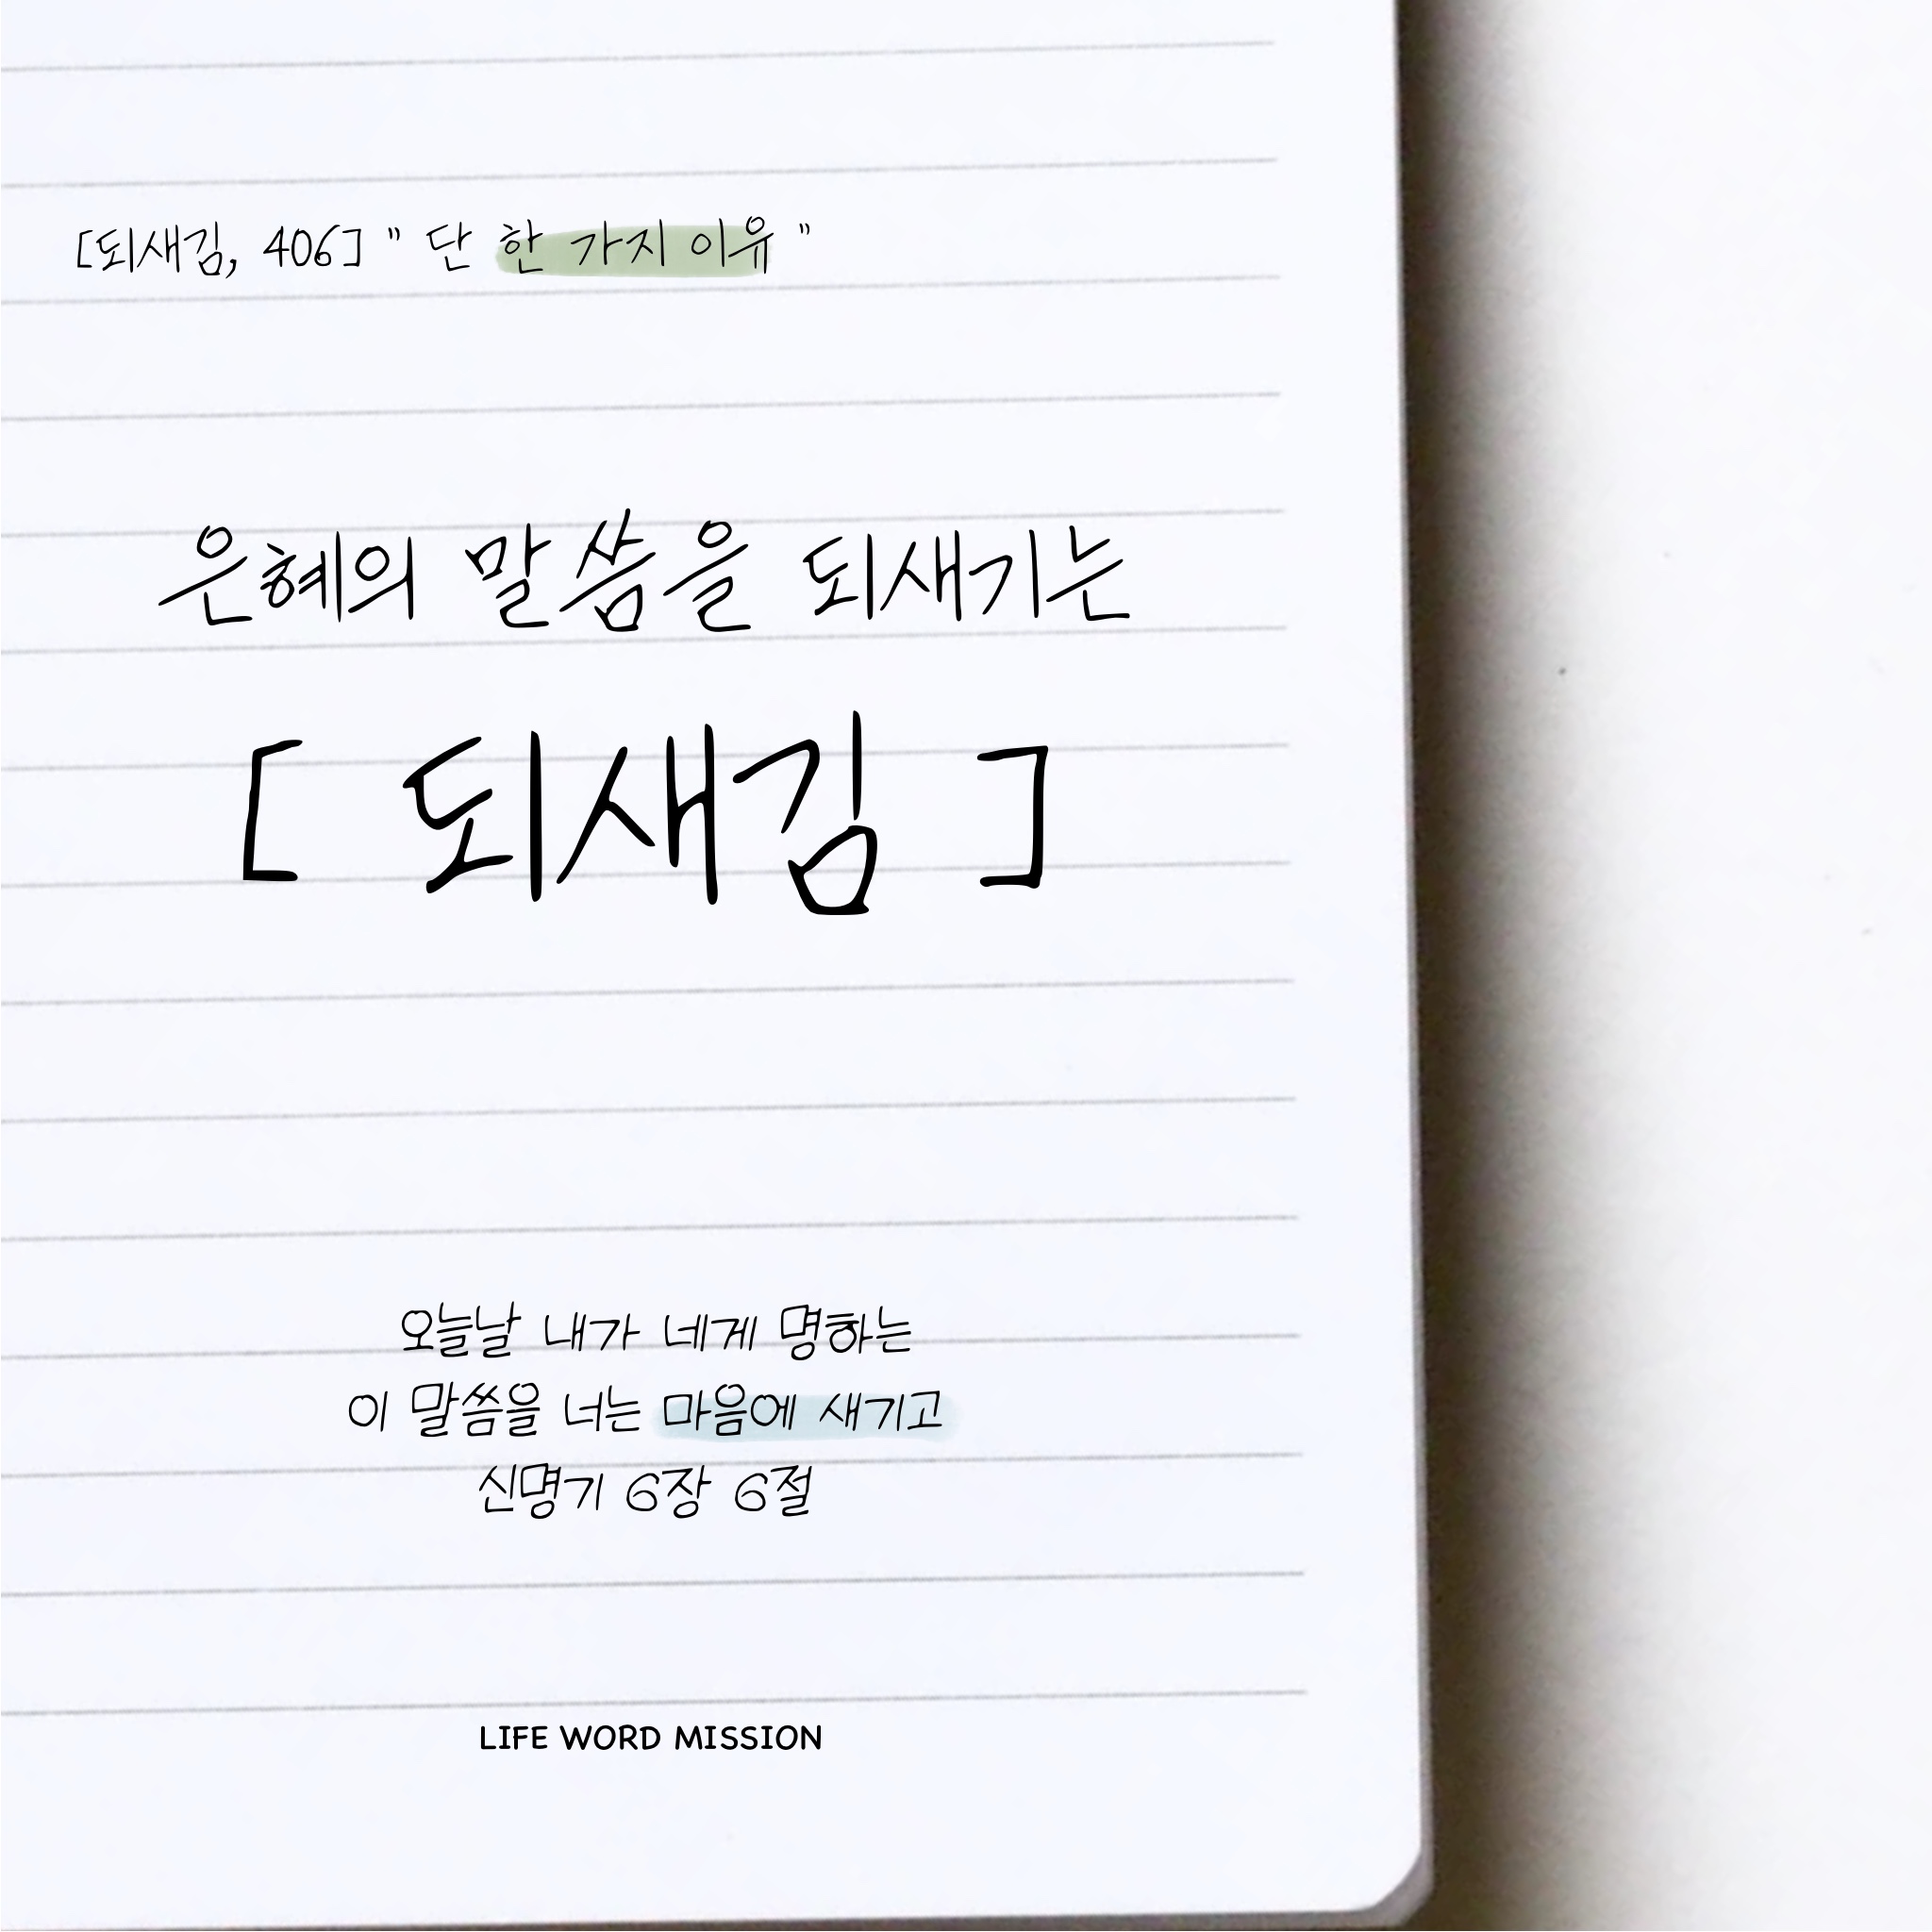 [되새김, 406] " 단 한 가지 이유 "
은혜의 말씀을 되새기는
[ 되새김 ]
오늘날 내가 네게 명하는
이 말씀을 너는 마음에 새기고
신명기 6장 6절
LIFE WORD MISSION